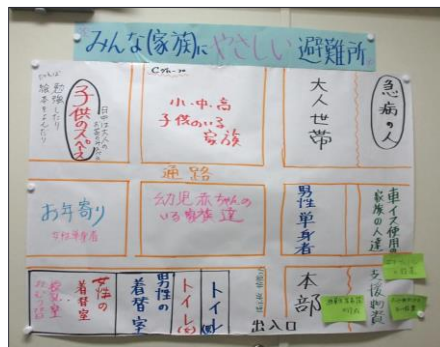 みんな(家族)にやさしい避難所
子供のスペース
勉強したり
絵本をよんだり
Cグループ
小・中・高
子供のいる
家族
大人世帯
急病の人
通路
お年寄り
女性単身者
幼児赤ちゃんの
いる家族達
男性単身者
車イス使用
家族の人達
女性の
着替室
授乳室
男性の
着替室
トイレ(女)
トイレ(男)
本部
支援物資
出入口